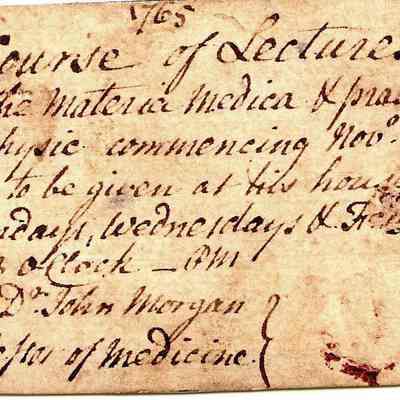 1765
Course of Lectures
the Materia Medica & prac
hysic commencing Nov.
to be given at his house
ndays, Wednesdays & Fri
o'Clock — PM
Dr. John Morgan
fessor of Medicine.